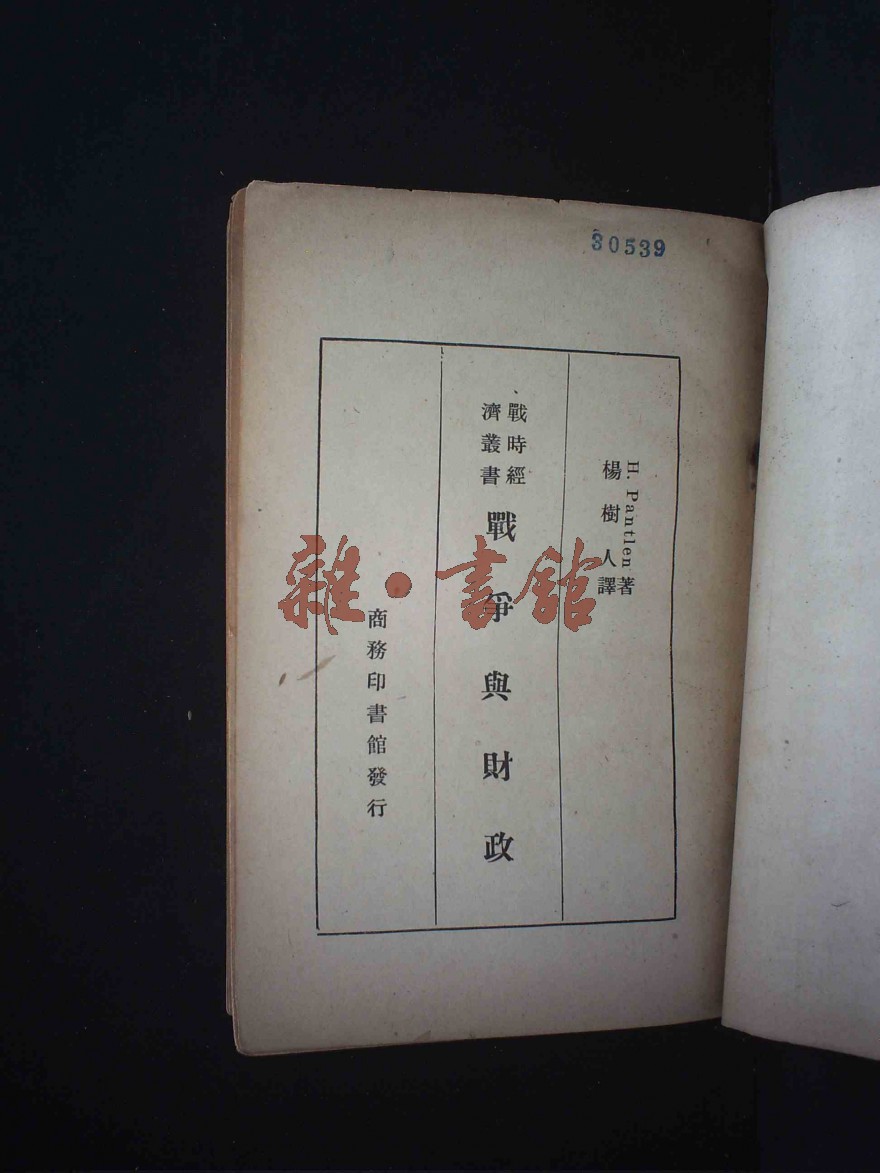 30539
H. Pantlen 著
楊樹人譯
戰時經
濟叢書
戰爭與財政
商務印書館發行
雜·書館